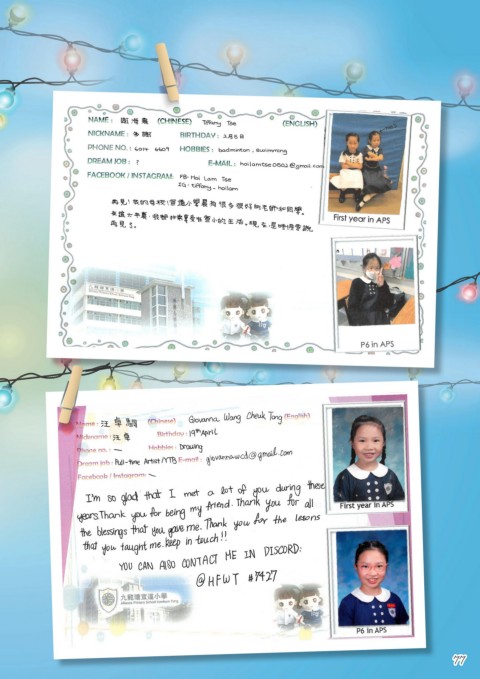 NAME: 謝海嵐 (CHINESE) Tiffany Tse (ENGLISH)
NICKNAME: BIRTHDAY: 2月8日
PHONE NO.: 6014 6609 HOBBIES: badminton, swimming
DREAM JOB: ? E-MAIL: hailamtse0802@gmail.com
FACEBOOK / INSTAGRAM: FB: Hoi Lam Tse
IG: tiffany_hoilam
再見!我的母校!宣道小學最有很多很好的老師和同學。
First year in APS
再見了。
P6 in APS
Name: 汪卓 (Chinese) Giovanna Wang Cheuk Tong (English)
Nickname: 汪卓 Birthday: 19th April
Phone no.: ~ Hobbies: Drawing
Dream job: Full-time Artist/YTB E-mail: giovannawcd@gmail.com
Facebook / Instagram: ~
I'm so glad that I met a lot of you during these
years. Thank you for being my friend. Thank you for all
the blessings that you gave me. Thank you for the lessons
that you taught me. keep in touch!!
First year in APS
YOU CAN ALSO CONTACT ME IN DISCORD:
@HFWT #7427
九龍塘宣道小學
Alliance Primary School Kowloon Tong
P6 in APS
77